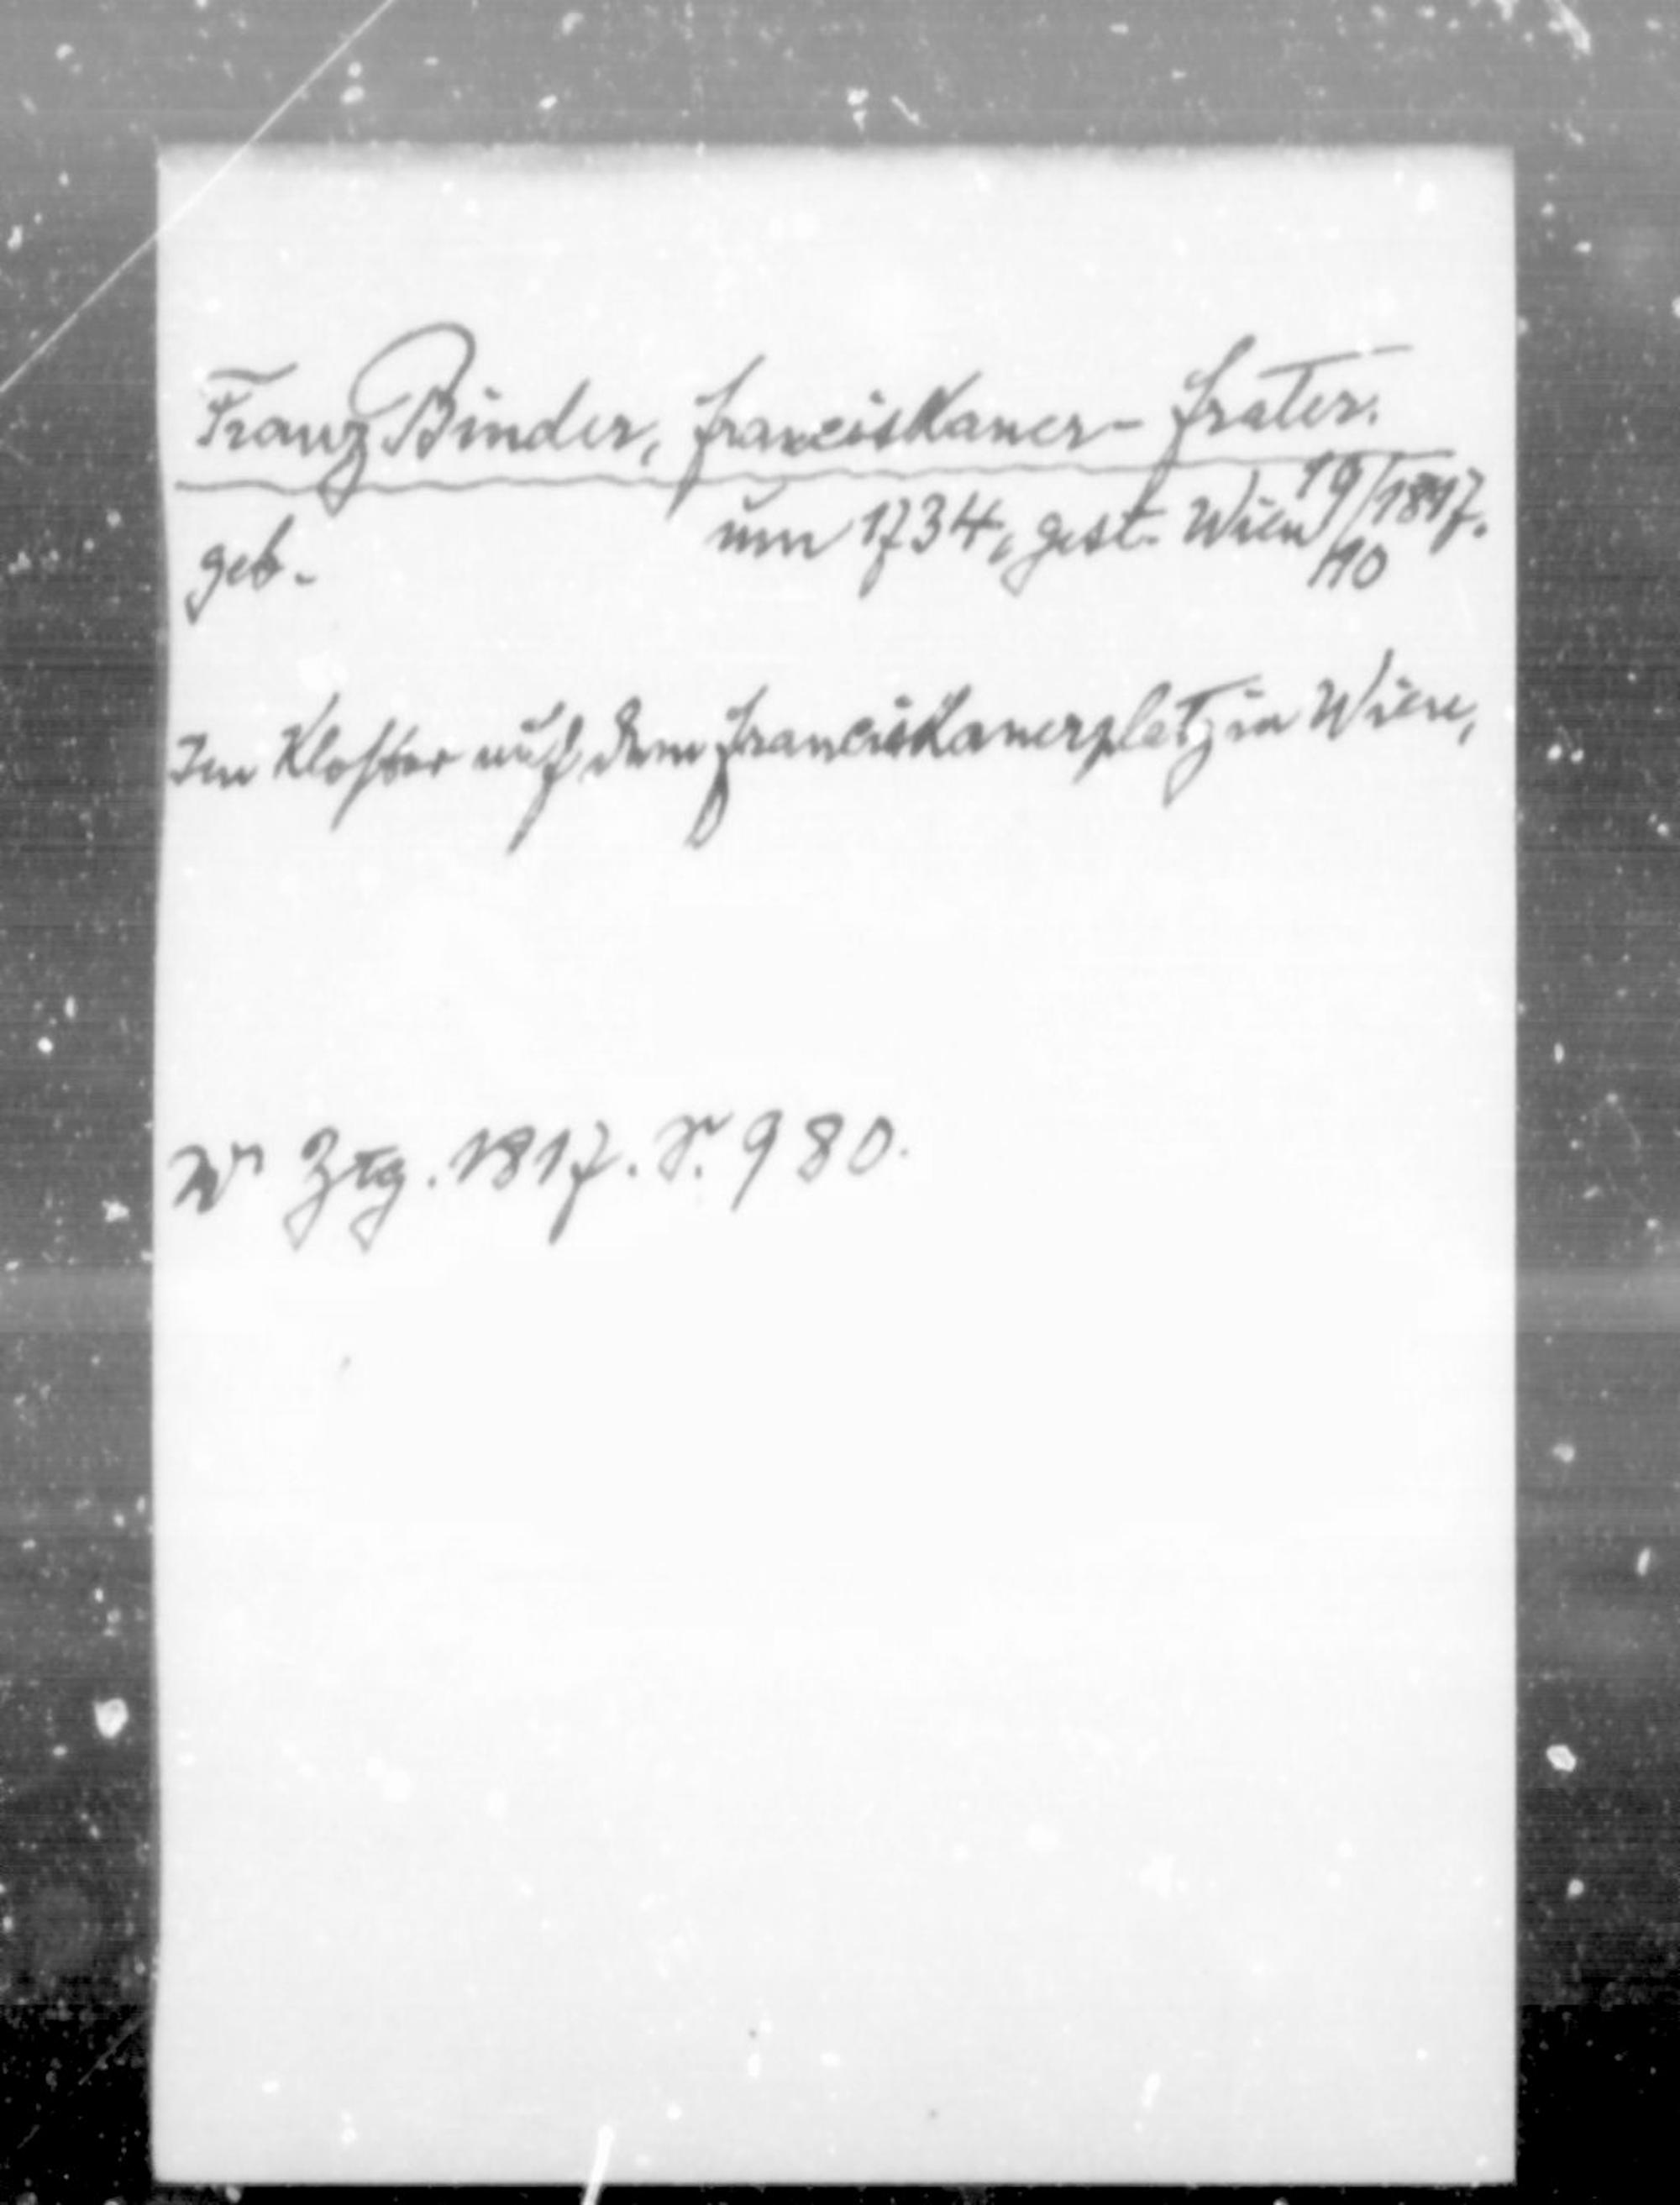 Franz Binder, Franciskaner-Frater.
geb. um 1734, gest. Wien 19/10 1817.
Im Kloster auf dem Franciskanerplatz in Wien,
Wr Ztg. 1817. S. 980.